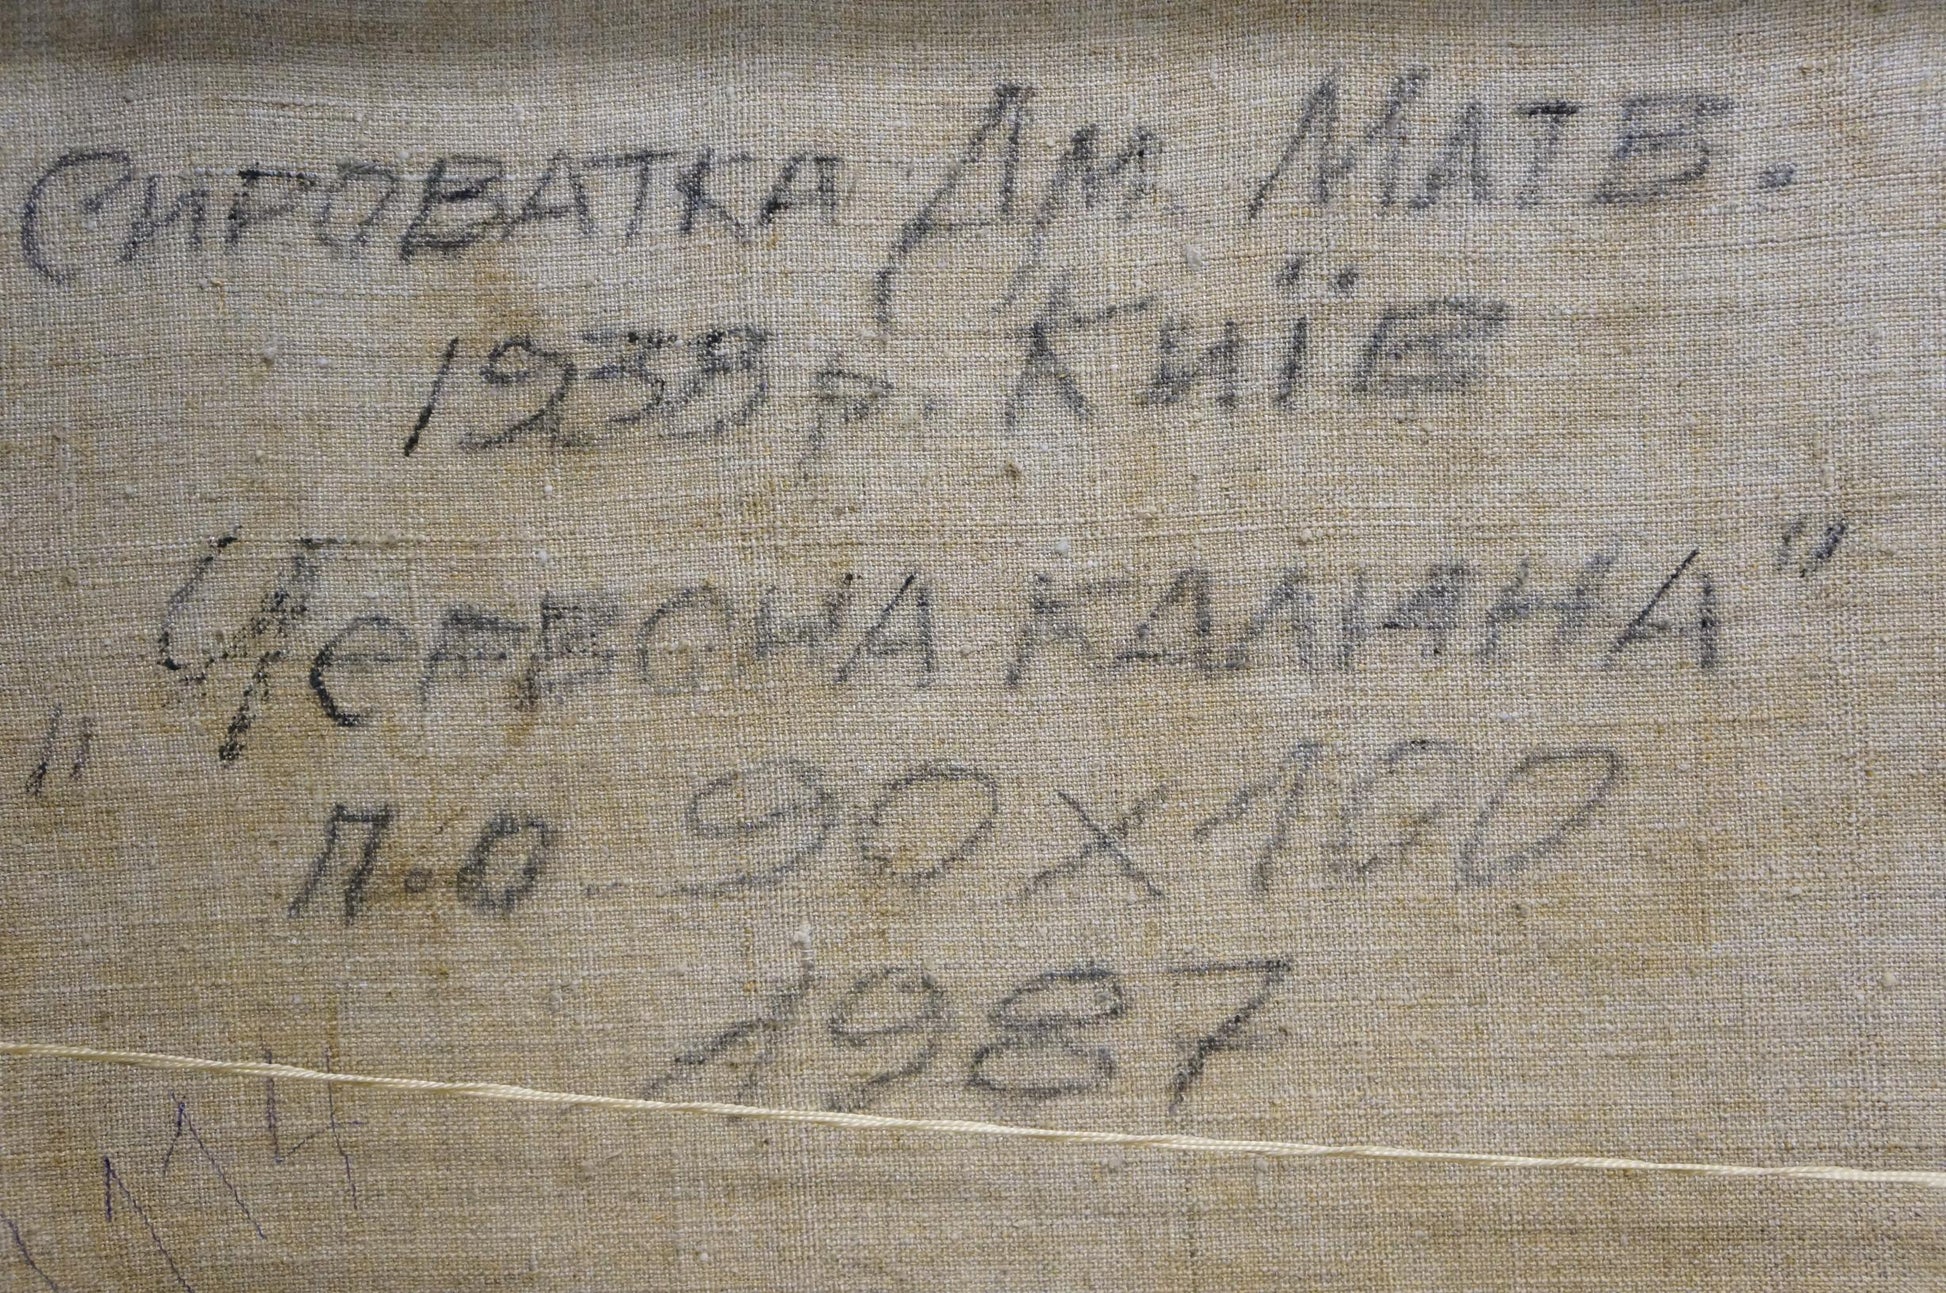 СИРОВАТКА ДМ. МАТВ.
1938 р. Київ
„ЧеРВОНА КАЛИНА"
П.О 90 x 100
1987